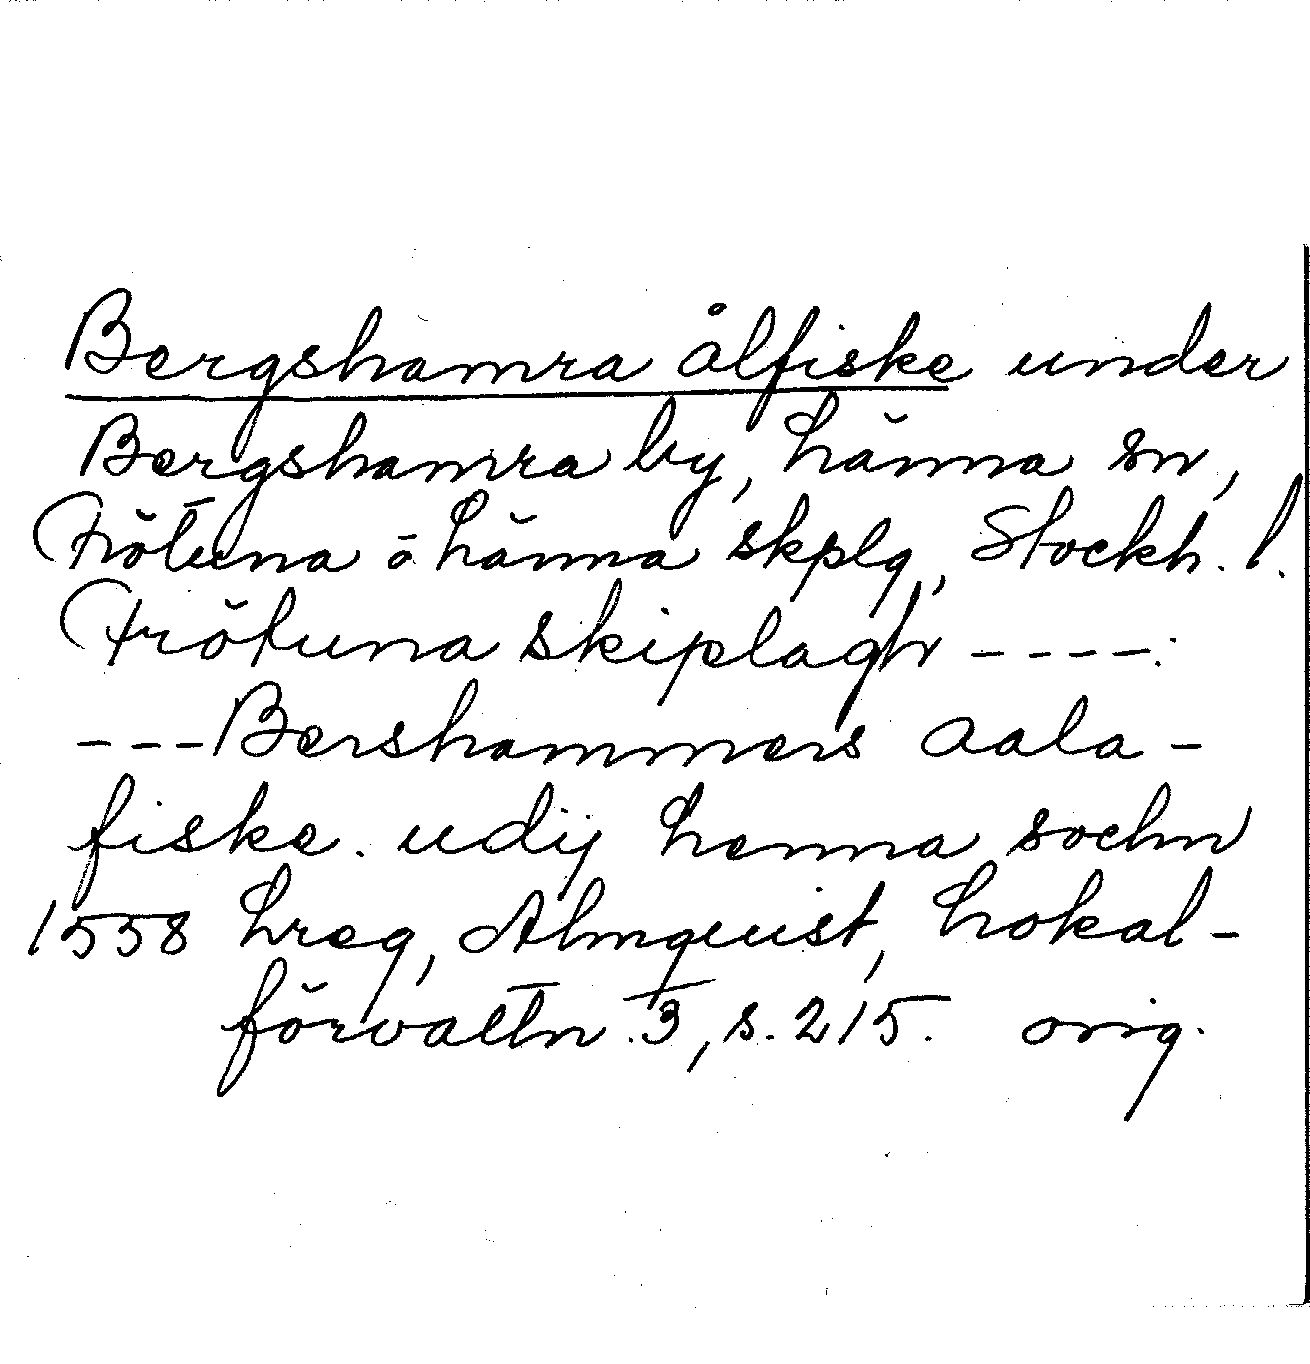 Bergshamra ålfiske under
Bergshamra by, Länna sn,
Frötuna o Länna skplg, Stockh. l.
Frötuna skiplagh ----:
---Bershammers aala-
fiske. udij Lenna sochn
1558 Lreg, Almquist, Lokal-
förvaltn. 3, s. 215. orig.